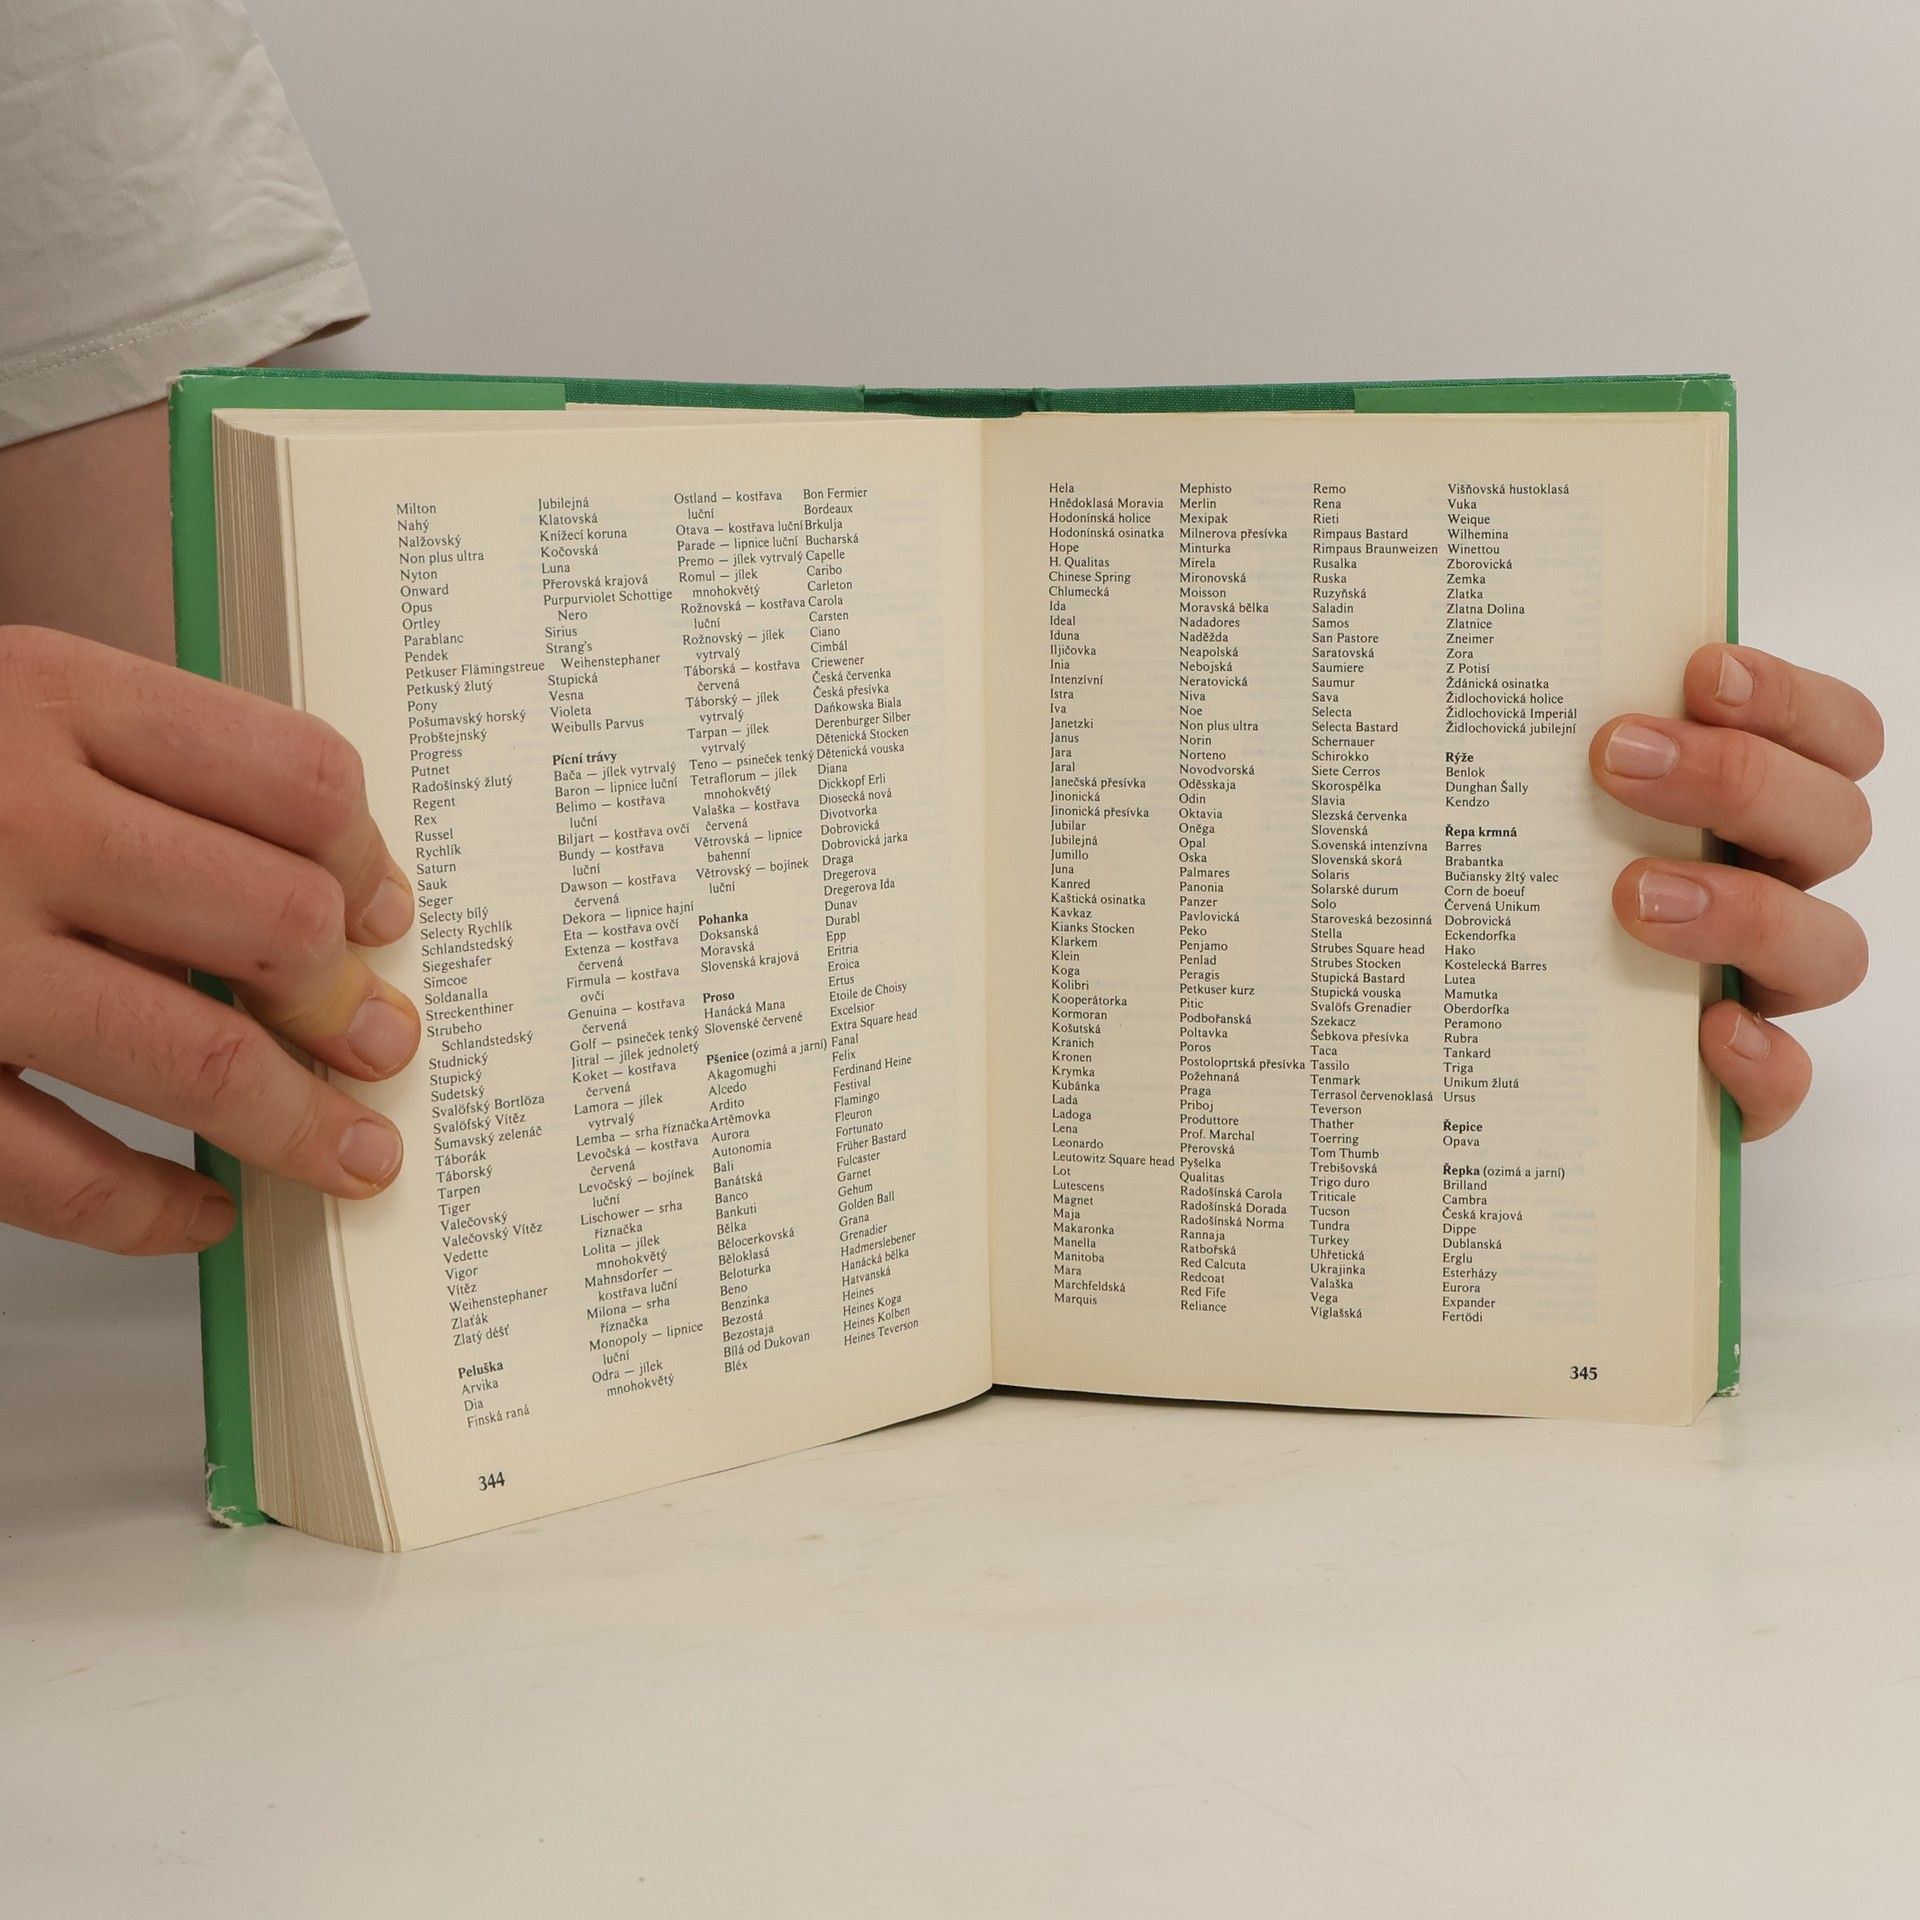 Milton
Nahý
Nalžovský
Non plus ultra
Nyton
Onward
Opus
Ortley
Parablanc
Pendek
Petkuser Flämingstreue
Petkuský žlutý
Pony
Pošumavský horský
Probštejnský
Progress
Putnet
Radošínský žlutý
Regent
Rex
Russel
Rychlík
Saturn
Sauk
Seger
Selecty bílý
Selecty Rychlík
Schlandstedský
Siegeshafer
Simcoe
Soldanalla
Streckenthiner
Strubeho
Schlandstedský
Studnický
Stupický
Sudetský
Svalöfský Bortlöza
Svalöfský Vítěz
Šumavský zelenáč
Táborák
Táborský
Tarpen
Tiger
Valečovský
Valečovský Vítěz
Vedette
Vigor
Vítěz
Weihenstephaner
Zlaťák
Zlatý déšť
Peluška
Arvika
Dia
Finská raná
Jubilejná
Klatovská
Knížecí koruna
Kočovská
Luna
Přerovská krajová
Purpurviolet Schottige
Nero
Sirius
Strang's
Weihenstephaner
Stupická
Vesna
Violeta
Weibulls Parvus
Pícní trávy
Bača — jílek vytrvalý
Baron — lipnice luční
Belimo — kostřava
luční
Biljart — kostřava ovčí
Bundy — kostřava
luční
Dawson — kostřava
červená
Dekora — lipnice hajní
Eta — kostřava ovčí
Extenza — kostřava
červená
Firmula — kostřava
ovčí
Genuina — kostřava
červená
Golf — psineček tenký
Jitral — jílek jednoletý
Koket — kostřava
červená
Lamora — jílek
vytrvalý
Lemba — srha říznačka
Levočská — kostřava
červená
Levočský — bojínek
luční
Lischower — srha
říznačka
Lolita — jílek
mnohokvětý
Mahnsdorfer —
kostřava luční
Milona — srha
říznačka
Monopoly — lipnice
luční
Odra — jílek
mnohokvětý
Ostland — kostřava
luční
Otava — kostřava luční
Parade — lipnice luční
Premo — jílek vytrvalý
Romul — jílek
mnohokvětý
Rožnovská — kostřava
luční
Rožnovský — jílek
vytrvalý
Táborská — kostřava
červená
Táborský — jílek
vytrvalý
Tarpan — jílek
vytrvalý
Teno — psineček tenký
Tetraflorum — jílek
mnohokvětý
Valaška — kostřava
červená
Větrovská — lipnice
bahenní
Větrovský — bojínek
luční
Pohanka
Doksanská
Moravská
Slovenská krajová
Proso
Hanácká Mana
Slovenské červené
Pšenice (ozimá a jarní)
Akagomughi
Alcedo
Ardito
Artěmovka
Aurora
Autonomia
Bali
Banátská
Banco
Bankuti
Bělka
Bělocerkovská
Běloklasá
Beloturka
Beno
Benzinka
Bezostá
Bezostaja
Bílá od Dukovan
Bléx
Bon Fermier
Bordeaux
Brkulja
Bucharská
Capelle
Caribo
Carleton
Carola
Carsten
Ciano
Cimbál
Criewener
Česká červenka
Česká přesívka
Daňkowska Biala
Derenburger Silber
Dětenická Stocken
Dětenická vouska
Diana
Dickkopf Erli
Diosecká nová
Divotvorka
Dobrovická
Dobrovická jarka
Draga
Dregerova
Dregerova Ida
Dunav
Durabl
Epp
Eritria
Eroica
Ertus
Etoile de Choisy
Excelsior
Extra Square head
Fanal
Felix
Ferdinand Heine
Festival
Flamingo
Fleuron
Fortunato
Früher Bastard
Fulcaster
Garnet
Gehum
Golden Ball
Grana
Grenadier
Hadmerslebener
Hanácká bělka
Hatvanská
Heines
Heines Koga
Heines Kolben
Heines Teverson
344
Hela
Hnědoklasá Moravia
Hodonínská holice
Hodonínská osinatka
Hope
H. Qualitas
Chinese Spring
Chlumecká
Ida
Ideal
Iduna
Iljičovka
Inia
Intenzívní
Istra
Iva
Janetzki
Janus
Jara
Jaral
Janečská přesívka
Jinonická
Jinonická přesívka
Jubilar
Jubilejná
Jumillo
Juna
Kanred
Kaštická osinatka
Kavkaz
Kianks Stocken
Klarkem
Klein
Koga
Kolibri
Kooperátorka
Kormoran
Košutská
Kranich
Kronen
Krymka
Kubánka
Lada
Ladoga
Lena
Leonardo
Leutowitz Square head
Lot
Lutescens
Magnet
Maja
Makaronka
Manella
Manitoba
Mara
Marchfeldská
Marquis
Mephisto
Merlin
Mexipak
Milnerova přesívka
Minturka
Mirela
Mironovská
Moisson
Moravská bělka
Nadadores
Naděžda
Neapolská
Nebojská
Neratovická
Niva
Noe
Non plus ultra
Norin
Norteno
Novodvorská
Oděsskaja
Odin
Oktavia
Oněga
Opal
Oska
Palmares
Panonia
Panzer
Pavlovická
Peko
Penjamo
Penlad
Peragis
Petkuser kurz
Pitic
Podbořanská
Poltavka
Poros
Postoloprtská přesívka
Požehnaná
Praga
Priboj
Produttore
Prof. Marchal
Přerovská
Pyšelka
Qualitas
Radošínská Carola
Radošínská Dorada
Radošínská Norma
Rannaja
Ratbořská
Red Calcuta
Redcoat
Red Fife
Reliance
Remo
Rena
Rieti
Rimpaus Bastard
Rimpaus Braunweizen
Rusalka
Ruska
Ruzyňská
Saladin
Samos
San Pastore
Saratovská
Saumiere
Saumur
Sava
Selecta
Selecta Bastard
Schernauer
Schirokko
Siete Cerros
Skorospělka
Slavia
Slezská červenka
Slovenská
S.ovenská intenzívna
Slovenská skorá
Solaris
Solarské durum
Solo
Staroveská bezosinná
Stella
Strubes Square head
Strubes Stocken
Stupická Bastard
Stupická vouska
Svalöfs Grenadier
Szekacz
Šebkova přesívka
Taca
Tassilo
Tenmark
Terrasol červenoklasá
Teverson
Thather
Toerring
Tom Thumb
Trebišovská
Trigo duro
Triticale
Tucson
Tundra
Turkey
Uhřetická
Ukrajinka
Valaška
Vega
Víglašská
Višňovská hustoklasá
Vuka
Weique
Wilhemina
Winettou
Zborovická
Zemka
Zlatka
Zlatna Dolina
Zlatnice
Zneimer
Zora
Z Potisí
Ždánická osinatka
Židlochovická holice
Židlochovická Imperiál
Židlochovická jubilejní
Rýže
Benlok
Dunghan Šally
Kendzo
Řepa krmná
Barres
Brabantka
Bučiansky žltý valec
Corn de boeuf
Červená Unikum
Dobrovická
Eckendorfka
Hako
Kostelecká Barres
Lutea
Mamutka
Oberdorfka
Peramono
Rubra
Tankard
Triga
Unikum žlutá
Ursus
Řepice
Opava
Řepka (ozimá a jarní)
Brilland
Cambra
Česká krajová
Dippe
Dublanská
Erglu
Esterházy
Eurora
Expander
Fertödi
345